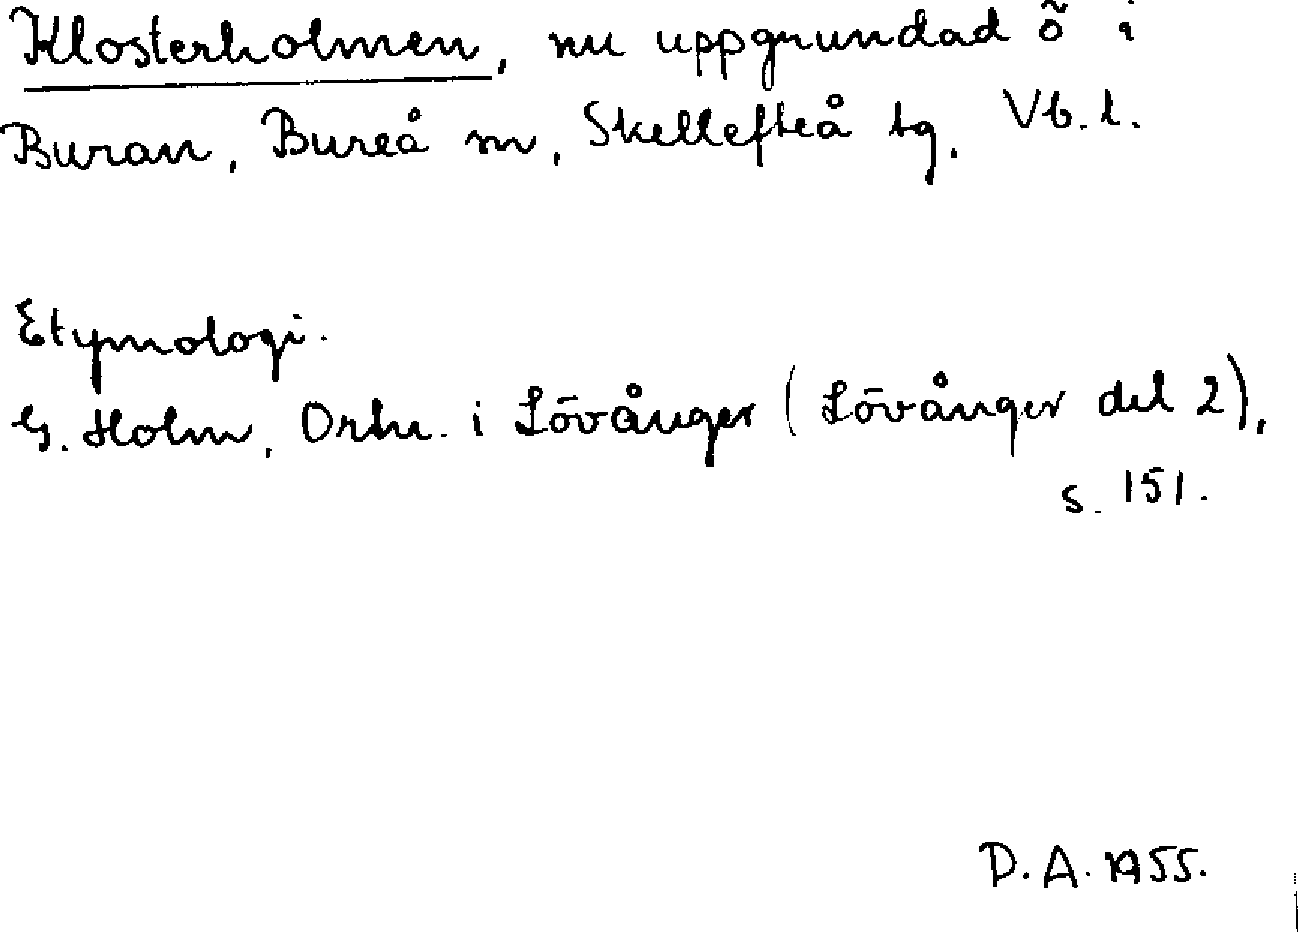 Klosterholmen, nu uppgrundad ö i
Buran, Bureå sn, Skellefteå tg. Vb. l.
Etymologi.
G. Holm, Ortn. i Lövånger (Lövånger del 2),
s. 151.
D. A. 1955.